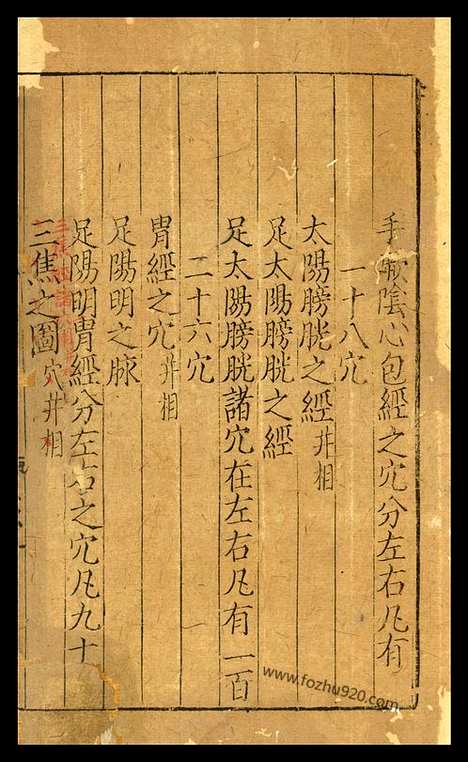 手厥陰心包經之穴分左右凡有
一十八穴
太陽膀胱之經并相
足太陽膀胱之經
足太陽膀胱諸穴在左右凡有一百
二十六穴
胃經之穴并相
足陽明之脉
足陽明胃經分左右之穴凡九十
三焦之圖穴并相
www.fozhu920.com